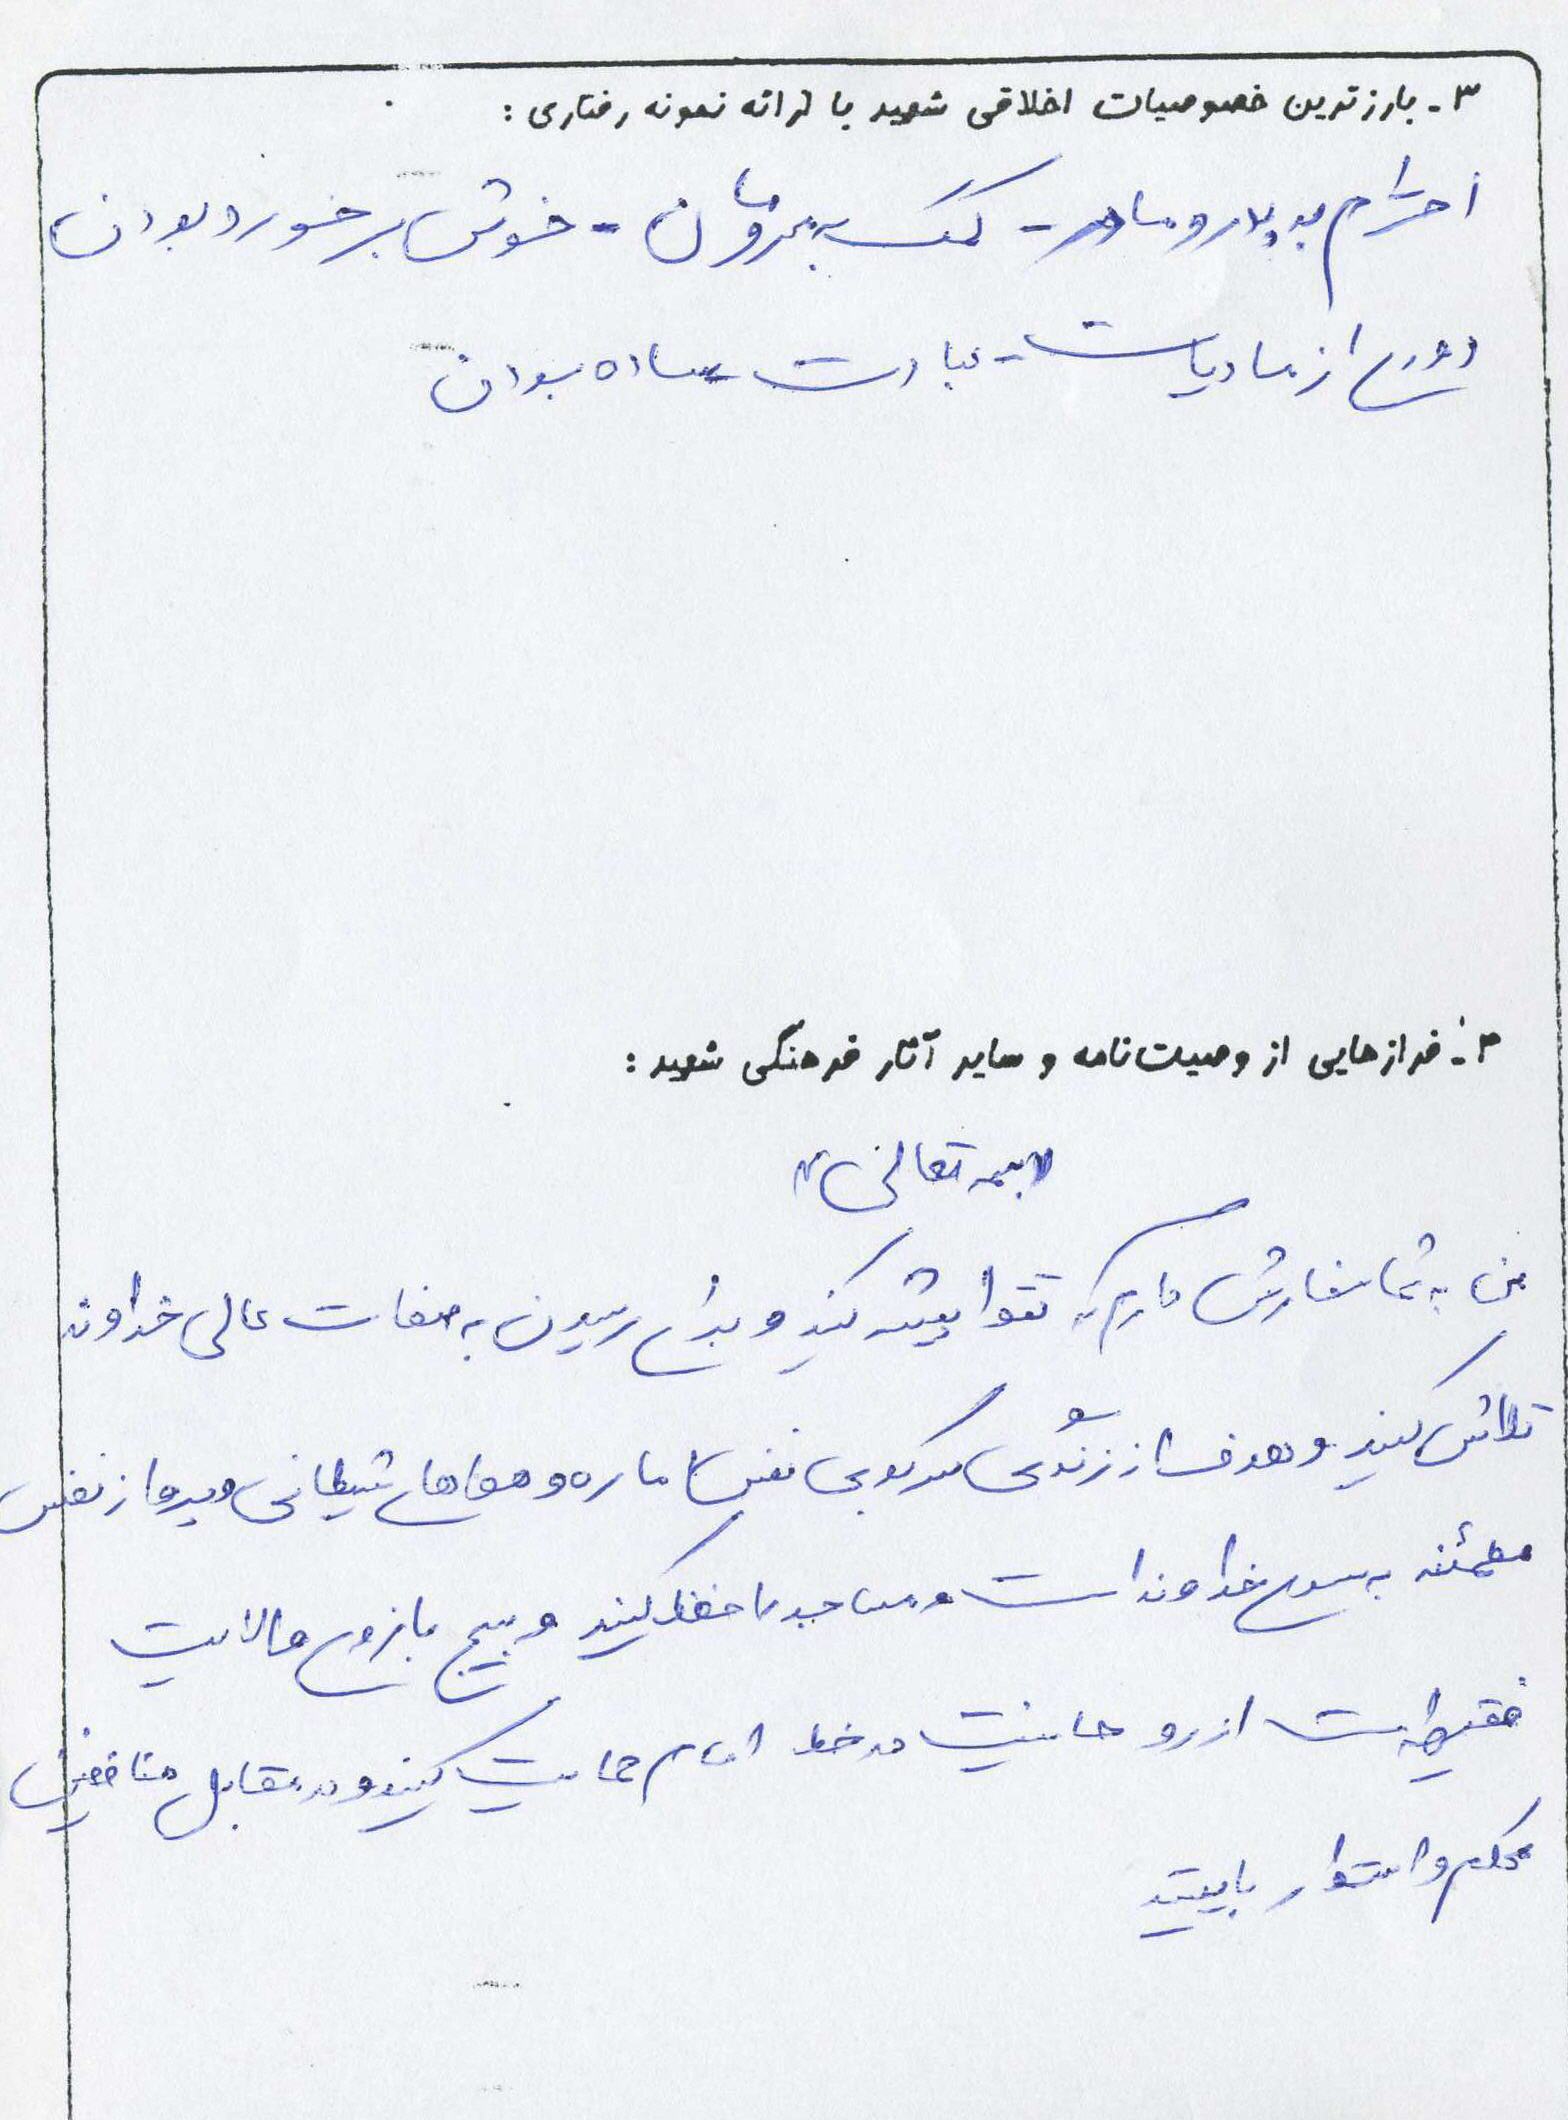 ۳- بارزترین خصوصیات اخلاقی شهید با ارائه نمونه رفتاری :
احترام به پدر و مادر - کمک به محرومان - خوش برخورد بودن
دوری از مادیات - عبادت - ساده بودن
۴- فرازهایی از وصیت‌نامه و سایر آثار فرهنگی شهید :
«بسمه تعالی»
من به شما سفارش دارم که تقوا پیشه کنید و برای رسیدن به صفات عالی خداوند
تلاش کنید و هدف از زندگی سرکوبی نفس اماره و هواهای شیطانی و پرواز نفس
مطمئنه به سوی خداوند است و مساجد را حفظ کنید و بسیج بازوی ولایت
فقیه است از روحانیت در خط امام حمایت کنید و در مقابل منافقین
محکم و استوار بایستید